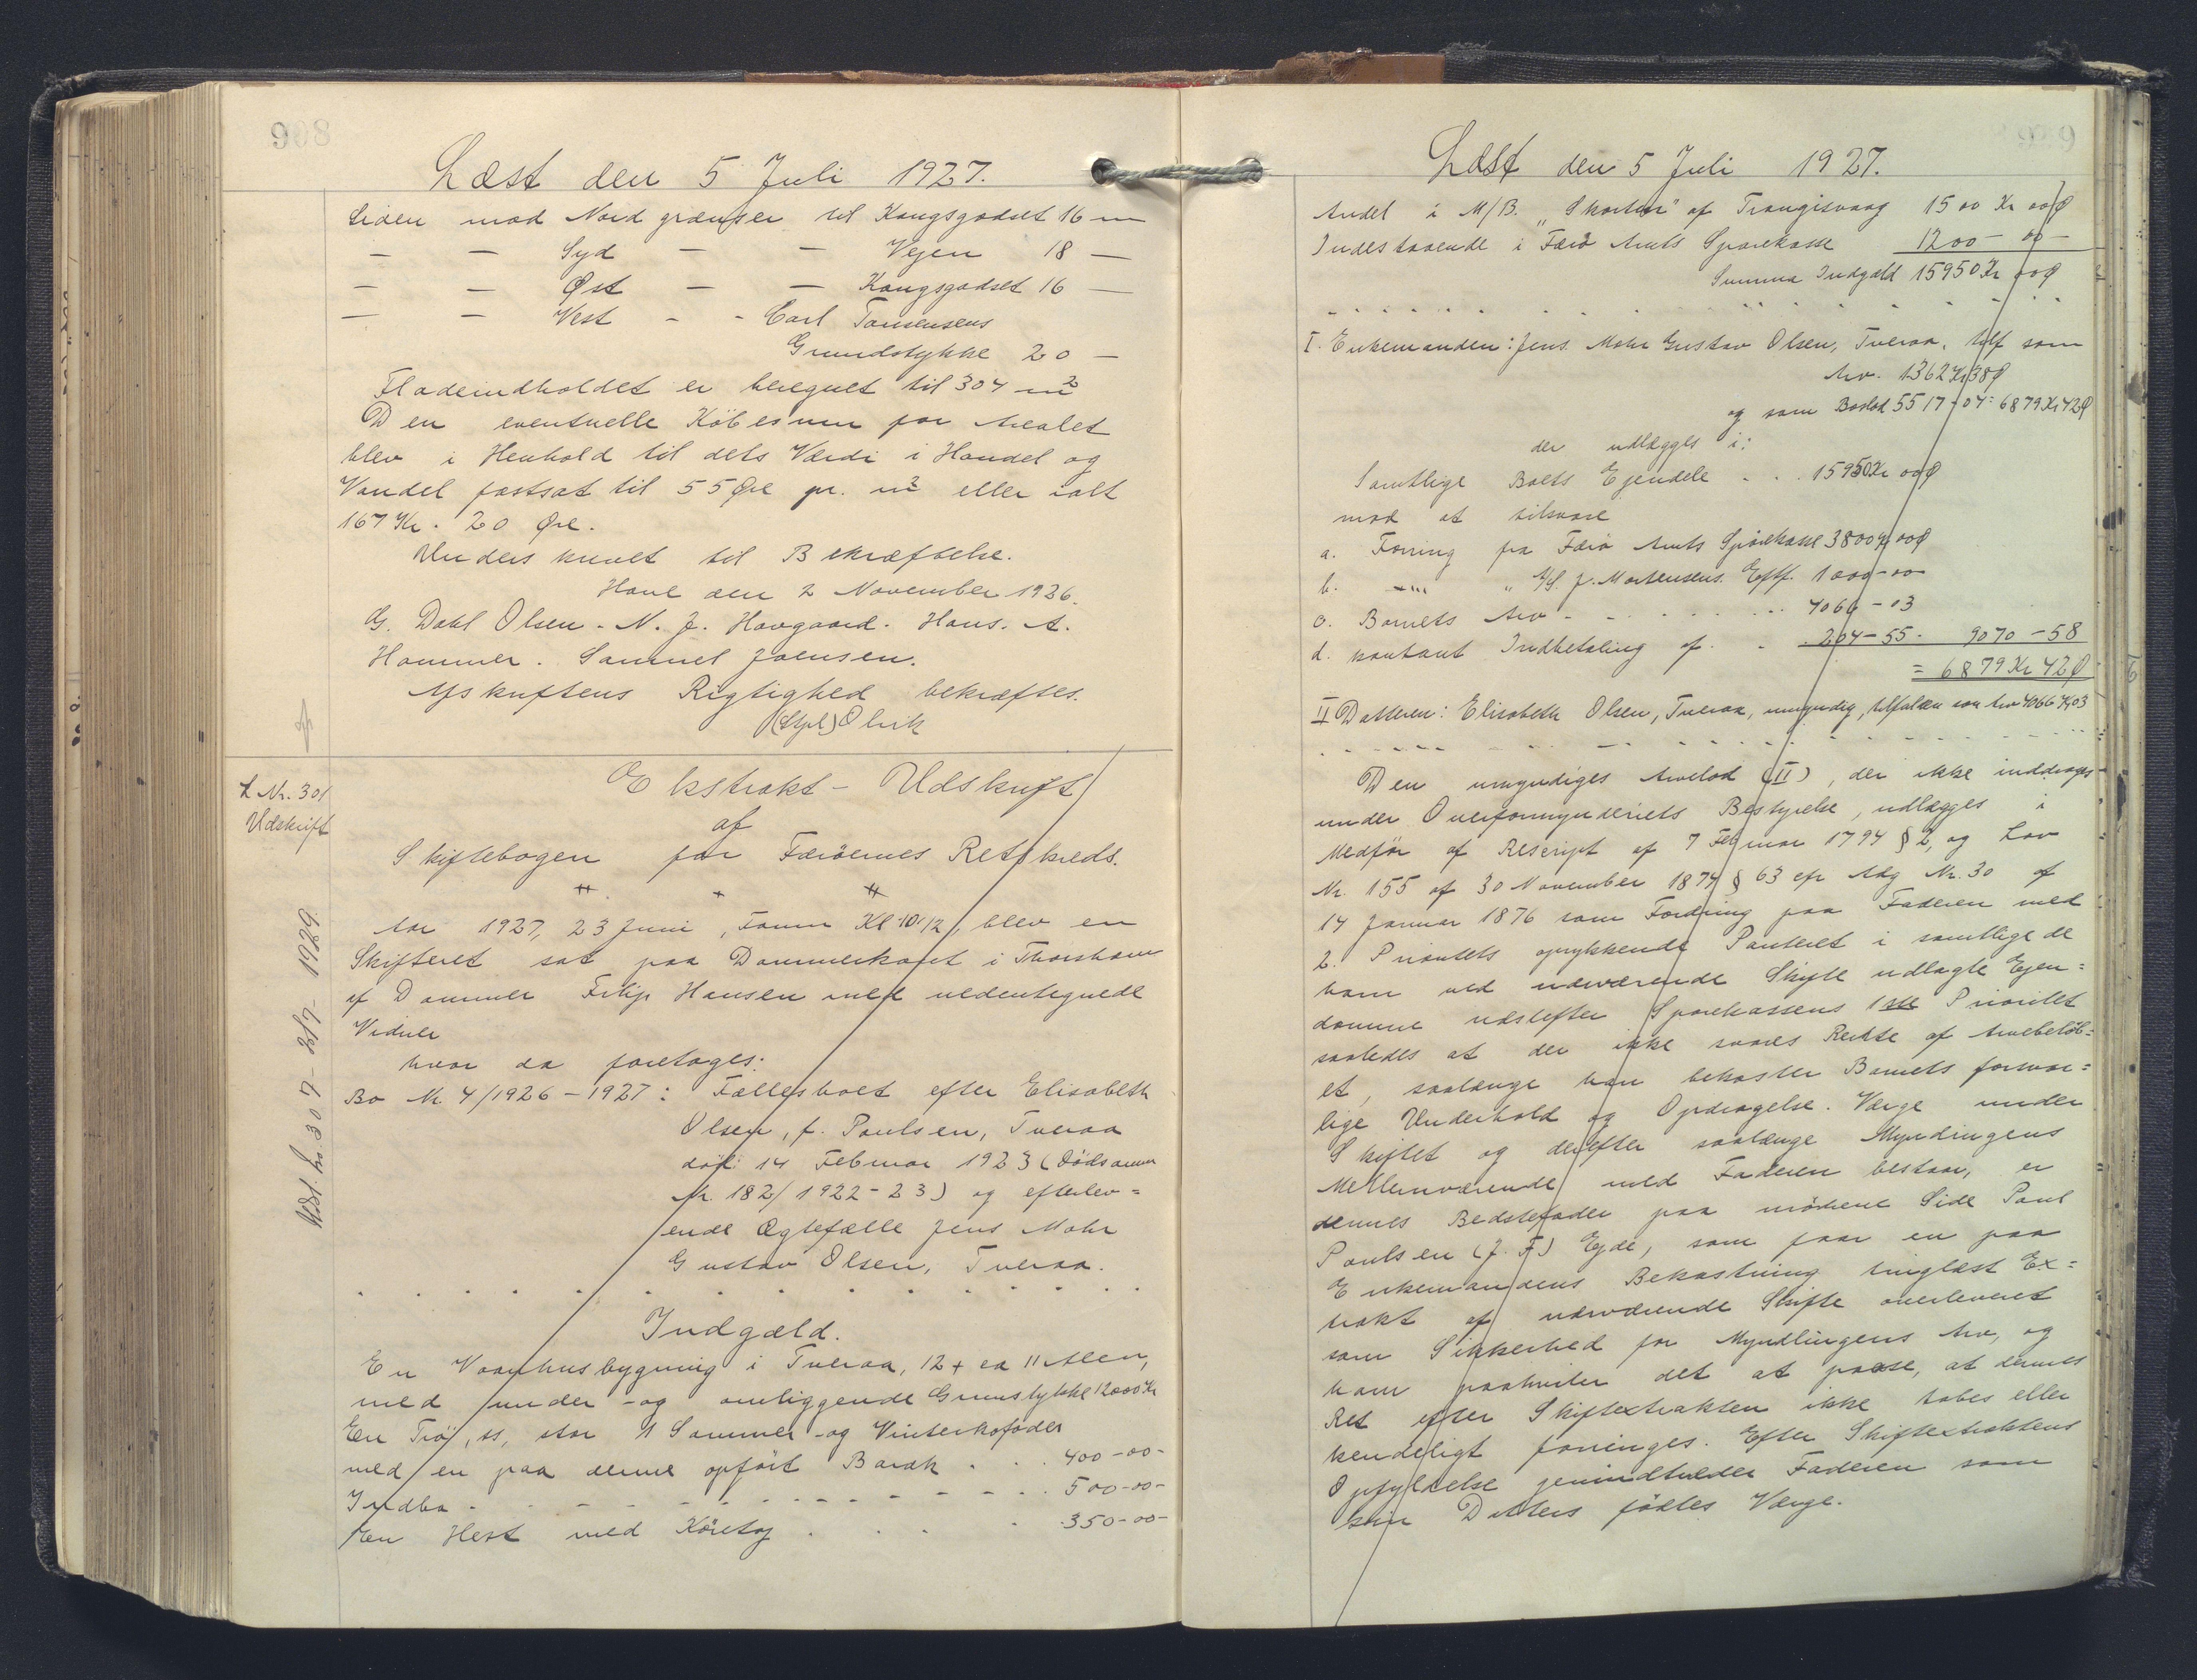 Læst den 5 Juli 1927.
Siden mod Nord grænser til Kongsgodset 16 m
— — Syd — — Vejen 18 —
— — Øst — — Kongsgodset 16 —
— — Vest - - Carl
Grundstykke 20 —
Fladeindholdet er beregnet til 304 m2
Den eventuelle Købesum for Arealet
blev i Henhold til dets Værdi i Handel og
Vandel fastsat til 55 Øre pr. m2 eller ialt
167 Kr. 20 Øre.
Underskrevet til Bekræftelse.
Hove den 2 November 1926.
G. Dahl Olsen - N. J. Hovgaard. Hans. A.
Hammer. Samuel Joensen.
Afskriftens Rigtighed bekræftes.
Olrik
L Nr. 301
Udskrift
Udsl. Lno 307 - 25/7 - 1929
Ekstrakt - Udskrift
af
Skiftebogen for Færöernes Retskreds.
Aar 1927, 23 Juni, Form Kl 10 1/2, blev en
Skifteret sat paa Dommerkont i Thorshavn
af Dommer Filip Hansen med nedentegnede
Vidner
hvor da foretoges:
Bo Nr. 4/1926-1927: Fællesboet efter Elisabeth
Olsen, f. Poulsen, Tveraa
död: 14 Februar 1923 (Dödsanm
Nr. 182/1922-23) og efterlev=
ende Ægtefælle Jens Mohr
Gustav Olsen, Tveraa.
Indgæld.
En Vaanhusbygning i Tveraa, 12 + ca 11 Alen,
med under - og omliggende Grunstykke 12000 Kr
En Tröj, stor 11 Sommer - og Vinterkofoder
med en paa denne opfört Barak . . . 400-00-
Indbo . . . 500-00-
En Hest med Köretøj . . . 350-00-
Læst den 5 Juli 1927.
Andel i M/B. "Skorten" af Trangisvaag 1500 Kr 00 Ø
Indestaaende i Færö Amts Sparekasse 1200 - 00 -
Summa Indgæld 15950 Kr 00 Ø
I. Enkemanden: Jens Mohr Gustav Olsen, Tveraa, tilf som
Arv. 1362 Kr 38 Ø
og som Boslod 5517 - 04 = 6879 Kr 42 Ø
der udlægges i:
Samtlige Boets Ejendele . . . 15950 Kr 00 Ø
mod at tilsvare
a. Fordring fra Færö Amts Sparekasse 3800 Kr 00 Ø
b. —"— " A/S. J. Mortensens Eftf. 1000-00
c. Barnets Arv - - . . . . 4066 - 03
d. kontant Indbetaling af . . 204-55 - 9070 - 58
= 6879 Kr 42 Ø
II Datteren: Elisabeth Olsen, Tveraa, umyndig, tilfalden som Arv 4066 Kr 03
Den umyndiges Arvelod (II), der ikke inddrages
under Overformynderiets Bestyrelse, udlægges i
Medför af Rescript af 7 Februar 1794 § 2, og Lov
Nr. 155 af 30 November 1874 § 63 cfr Adg Nr. 30 af
14 Januar 1876 som Fordring paa Faderen med
2. Prioritets oprykkende Panteret i samtlige de
ham ved nærværende Skifte udlagte Ejen=
domme næstefter Sparekassens 1ste Prioritet
saaledes at der ikke svares Rente af Arvebelöb=
et, saalænge han bekoster Barnets forsvar=
lige Underhold og Opdragelse. Værge under
Skiftet og derefter saalænge Myndlingens
Mellemværende med Faderen bestaar, er
dennes Bedstefader paa mödrene Side Poul
Poulsen (J. F.) Ejde, som faar en paa
Enkemandens Bekostning tinglæst Ex=
trakt af nærværende Skifte overleveret
som Sikkerhed for Myndlingens Arv, og
ham paahviler det at paase, at dennes
Ret efter Skifteextrakten ikke tabes eller
kendeligt forringes. Efter Skifteextraktens
Opfyldelse genindtræder Faderen som
sin Datters födtes Værge.